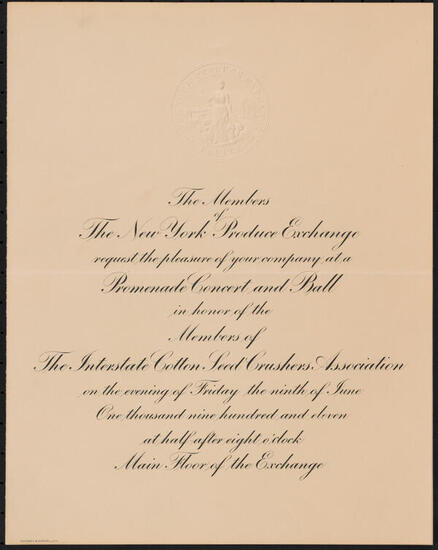 The Members
of
The New York Produce Exchange
request the pleasure of your company at a
Promenade Concert and Ball
in honor of the
Members of
The Interstate Cotton Seed Crushers Association
on the evening of Friday the ninth of June
One thousand nine hundred and eleven
at half after eight o'clock
Main Floor of the Exchange